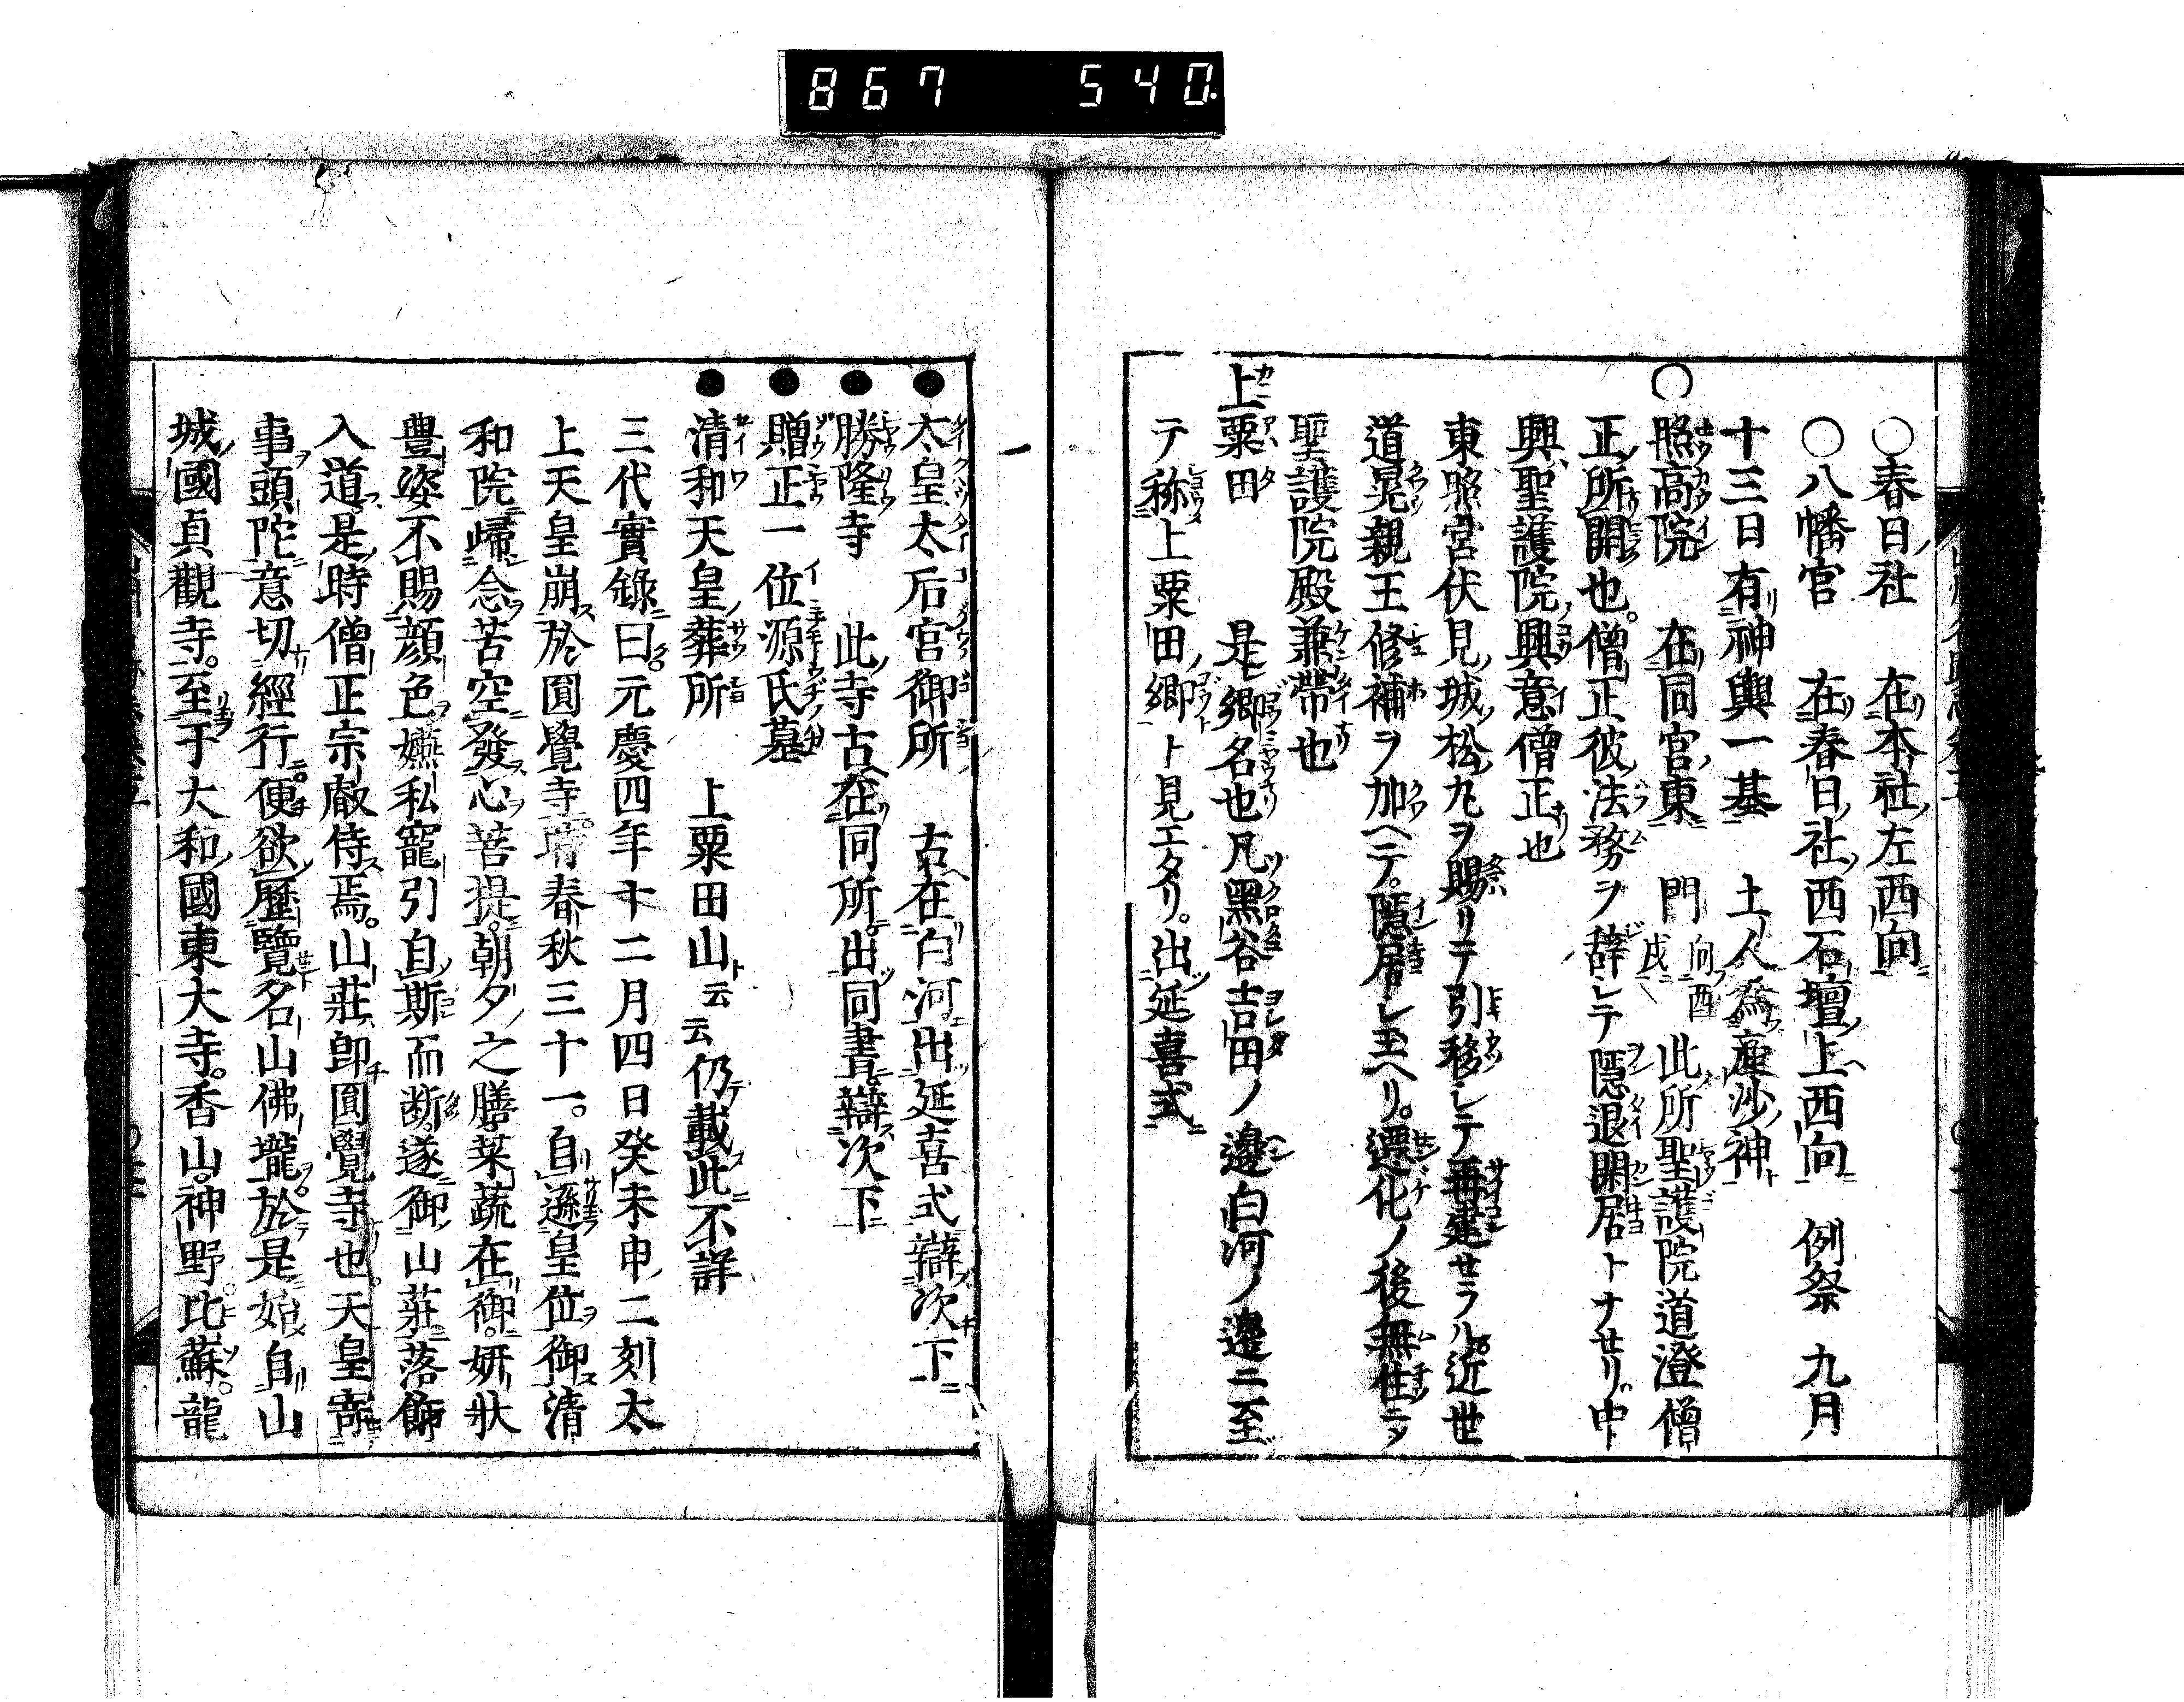 867 540.
○春日社 在本社左西向
○八幡宮 在春日社西石壇上西向 例祭 九月
十三日有神輿一基 土人為産沙神
○照高院 在同宮東 門向酉戌 此所聖護院道澄僧
正所開也。僧正彼法務ヲ辞シテ隱退閑居トナセリ。中
興聖護院興意僧正也
東照宮伏見城松丸ヲ賜リテ引移シテ再建セラル。近世
道晃親王修補ヲ加ヘテ。隱居シ玉ヘリ。遷化ノ後無住ニ〆
聖護院殿兼帶也
上粟田 是郷名也凡黑谷吉田ノ邊白河ノ邊ニ至
テ称上粟田郷ト見エタリ。出延喜式
●太皇太后宮御所 古在白河出延喜式辯次下
●勝隆寺 此寺古在同所。出同書辯次下
●贈正一位源氏墓
●清和天皇葬所 上粟田山ト云云仍載此不詳
三代實錄曰。元慶四年十二月四日癸未申二刻太
上天皇崩於圓覺寺。時春秋三十一。自遜皇位御清
和院歸念苦空發心菩提。朝夕之膳。菜蔬在御。妍狀
豊姿不賜顔色嬿私寵引自斯而断。遂御山莊落餝
入道。是時僧正宗叡侍焉。山莊卽圓覺寺也。天皇寄
事頭陀意切經行。便欲歷覽名山佛壠。於是始自山
城國貞觀寺。至于大和國東大寺。香山。神野。比蘇。龍